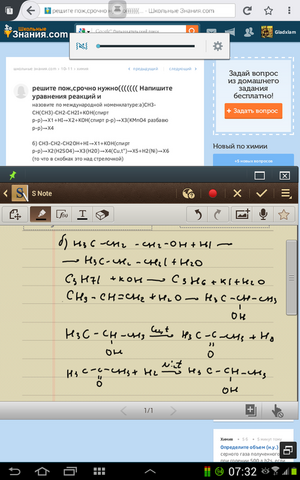 znanija.com - 10-11 - химия
Школьные
Знания.com
Gladxiam
решите пож,срочно нужно((((((( Напишите
уравнения реакций и
назовите по международной номенклатуре:а)CH3-
CH(CH3)-CH2-CH2I+KOH(спирт
р-р)→X1+HI→X2+KOH(спирт р-р)→X3(KMnO4 разбавл
р-р)→X4
б) CH3-CH2-CH2OH+HI→X1+KOH(спирт
р-р)→X2(H2SO4)→X3(H20)→X4(Cu,t°)→X5+H2(Ni)→X6
(то что в скобках это над стрелочкой)
Задай вопрос
из домашнего
задания
бесплатно!
+ Задать вопрос
Новый по химии
S Note
б) H3C-CH2-CH2-OH + HI →
→ H3C-CH2-CH2I + H2O
C3H7I + KOH → C3H6 + KI + H2O
CH3-CH=CH2 + H2O → H3C-CH-CH3
OH
H3C-CH-CH3 Cu,t → H3C-C-CH3 + H2
OH O
H3C-C-CH3 + H2 Ni,t → H3C-CH-CH3
O OH
1/1
Химия
Определите объем (н.у.)
07:32